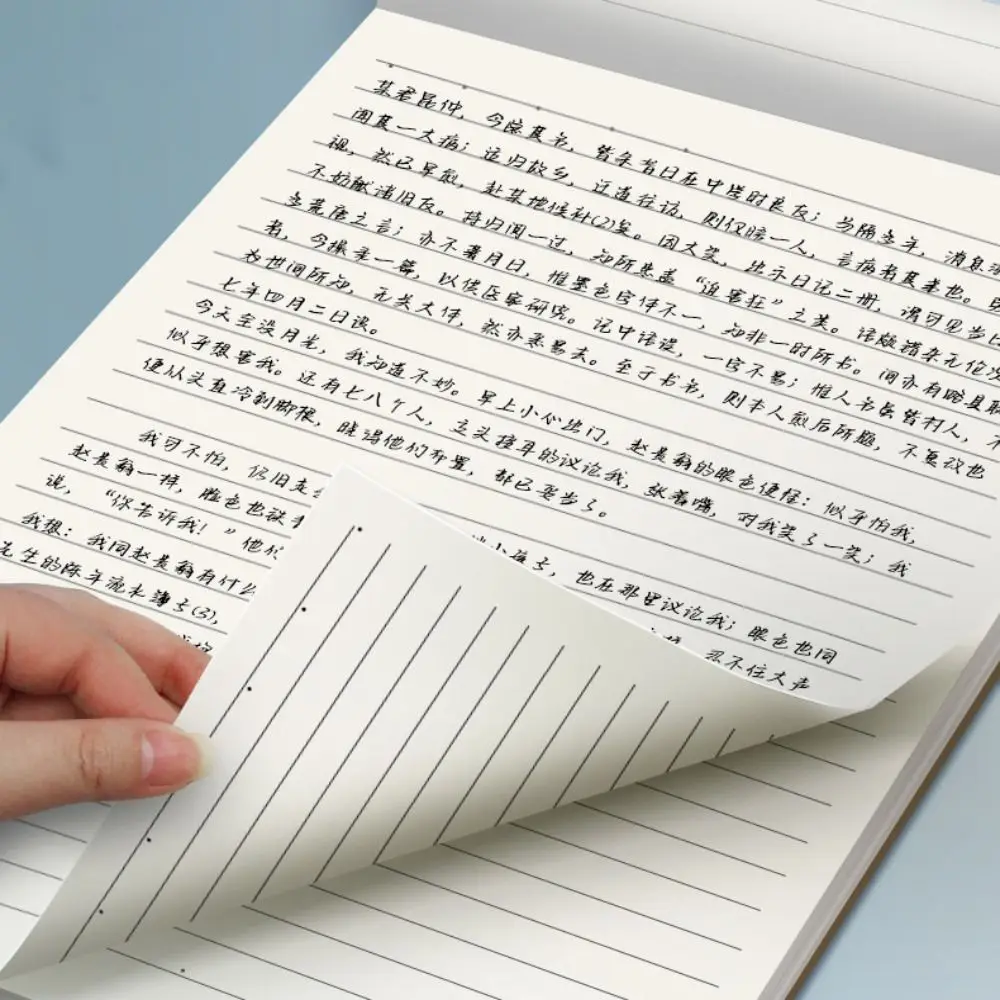 某君昆仲，今隐其名，皆余昔日在中学时良友；分隔多年，消息渐
闻其一大病；适归故乡，迂道往访，则仅晤一人，言病者其弟也。
视，然已早愈，赴某地候补(2)矣。因大笑，出示日记二册，谓可见当日
不妨献诸旧友。持归阅一过，知所患盖“迫害狂”之类。语颇错杂无伦次
多荒唐之言；亦不著月日，惟墨色字体不一，知非一时所书。间亦有略具联
者，今撮录一篇，以供医家研究。记中语误，一字不易；惟人名虽皆村人，不
为世间所知，无关大体，然亦悉易去。至于书名，则本人愈后所题，不复改也
七年四月二日识。
今天全没月光，我知道不妙。早上小心出门，赵贵翁的眼色便怪：似乎怕我，
似乎想害我。还有七八个人，交头接耳的议论我，张着嘴，对我笑了一笑；我
便从头直冷到脚根，晓得他们布置，都已妥当了。
我可不怕，仍旧走 小孩子，也在那里议论我；眼色也同
赵贵翁一样，脸色也铁 忍不住大声
说，“你告诉我！”他们
我想：我同赵贵翁有什么
先生的陈年流水簿子(3)，